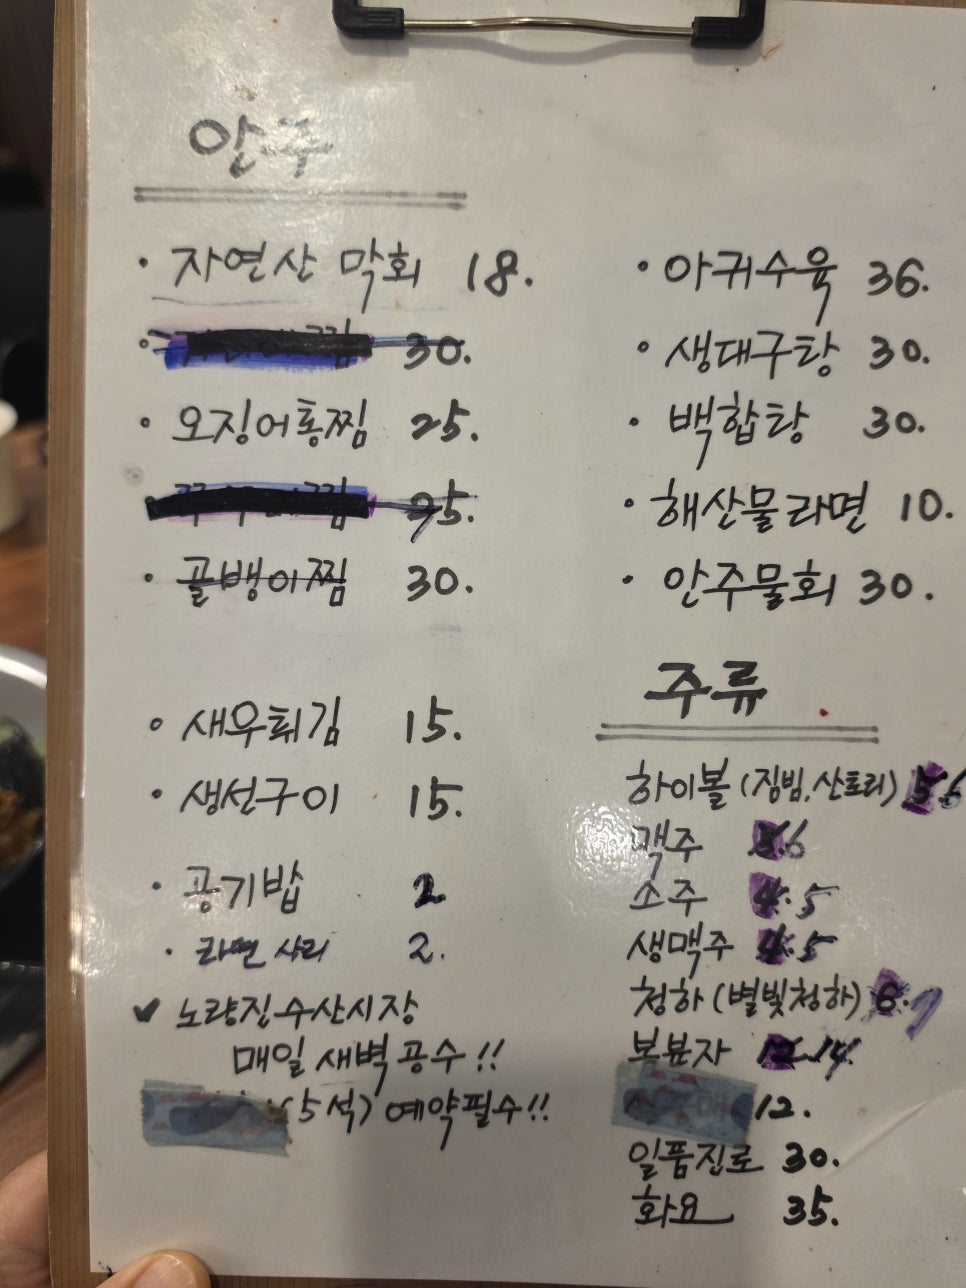 안주
· 자연산 막회 18.
· 찜 30.
· 오징어통찜 25.
· 찜 25.
· 골뱅이찜 30.
· 새우튀김 15.
· 생선구이 15.
· 공기밥 2
· 라면 사리 2.
✔ 노량진수산시장
매일 새벽 공수!!
(5석) 예약필수!!
· 아귀수육 36.
· 생대구탕 30.
· 백합탕 30.
· 해산물라면 10.
· 안주물회 30.
주류
하이볼 (짐빔, 산토리) 6
맥주 6
소주 5
생맥주 5
청하 (별빛청하) 7
복분자 14
12.
일품진로 30.
화요 35.